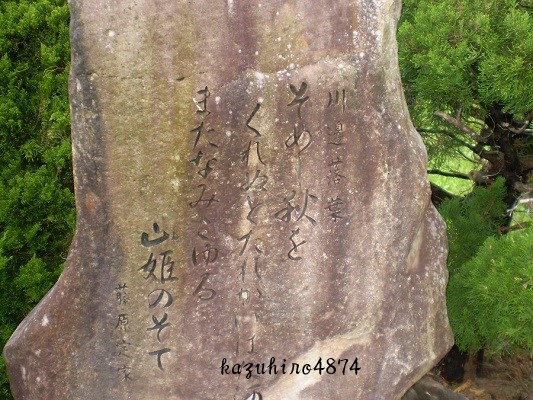 川邊落葉
そめし秋を
くれぬとたれか
またなみこゆる
山姫のそて
藤原定家
kazuhiro4874